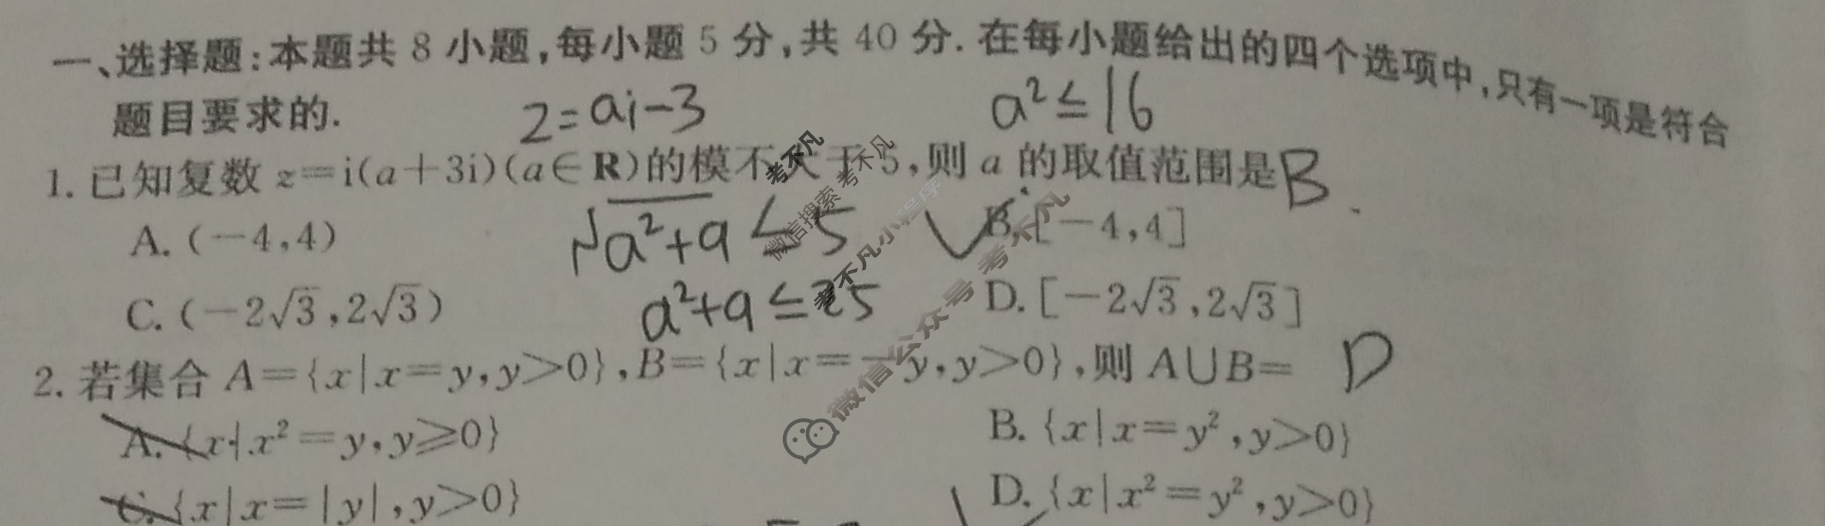 一、选择题:本题共 8 小题,每小题 5 分,共 40 分. 在每小题给出的四个选项中,只有一项是符合
题目要求的.
z=ai-3
a²≤16
1. 已知复数 z=i(a+3i)(a∈R)的模不大于5,则 a 的取值范围是B
A. (-4,4)
√a²+9≤5
B. [-4,4]
C. (-2√3,2√3)
a²+9≤25
D. [-2√3,2√3]
2. 若集合 A={x|x=y,y>0},B={x|x=-y,y>0},则 A∪B= D
A. {x|x²=y,y≥0}
B. {x|x=y²,y>0}
C. {x|x=|y|,y>0}
D. {x|x²=y²,y>0}
考不凡
微信搜索考不凡
考不凡小程序
微信公众号 考不凡